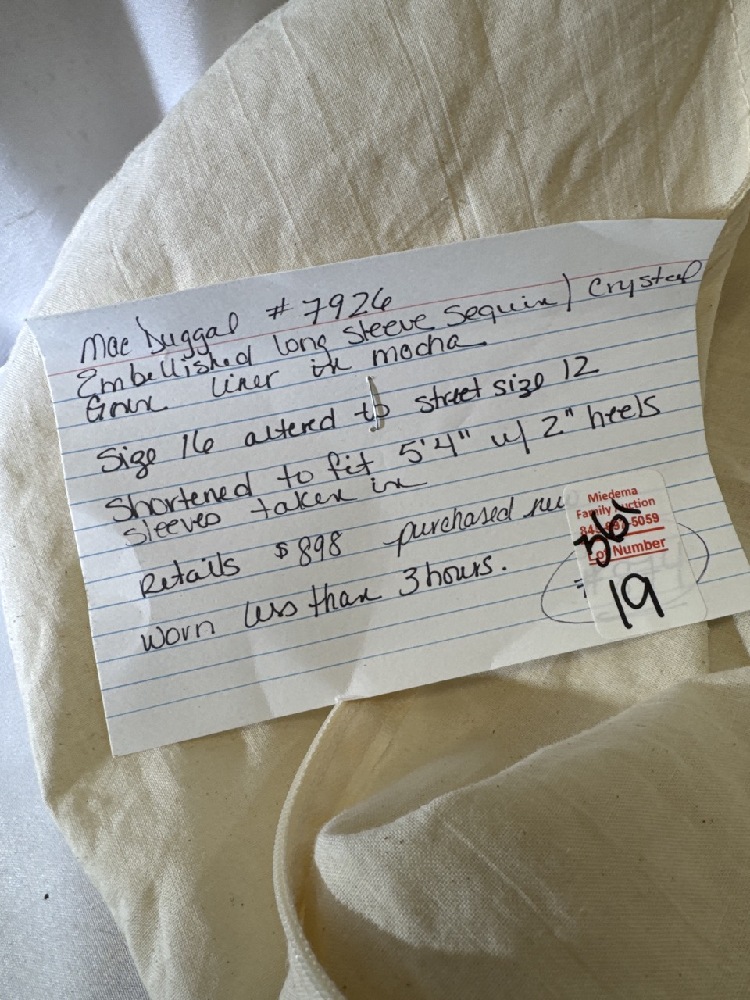 Mac Duggal # 7926
Embellished long sleeve sequin / Crystal
Gown liner in mocha
Size 16 altered to street size 12
Shortened to fit 5'4" w/ 2" heels
sleeves taken in
Retails $898 purchased new
worn less than 3 hours.
Miedema
Family Auction
5059
Lot Number
19